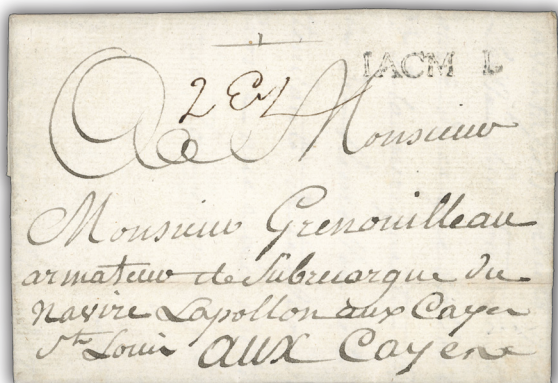 IACM L
2 E
A Monsieur
Monsieur Grenouilleau
armateur et Subrecargue du
navire Lapollon aux Cayes
St. Louis aux Cayes